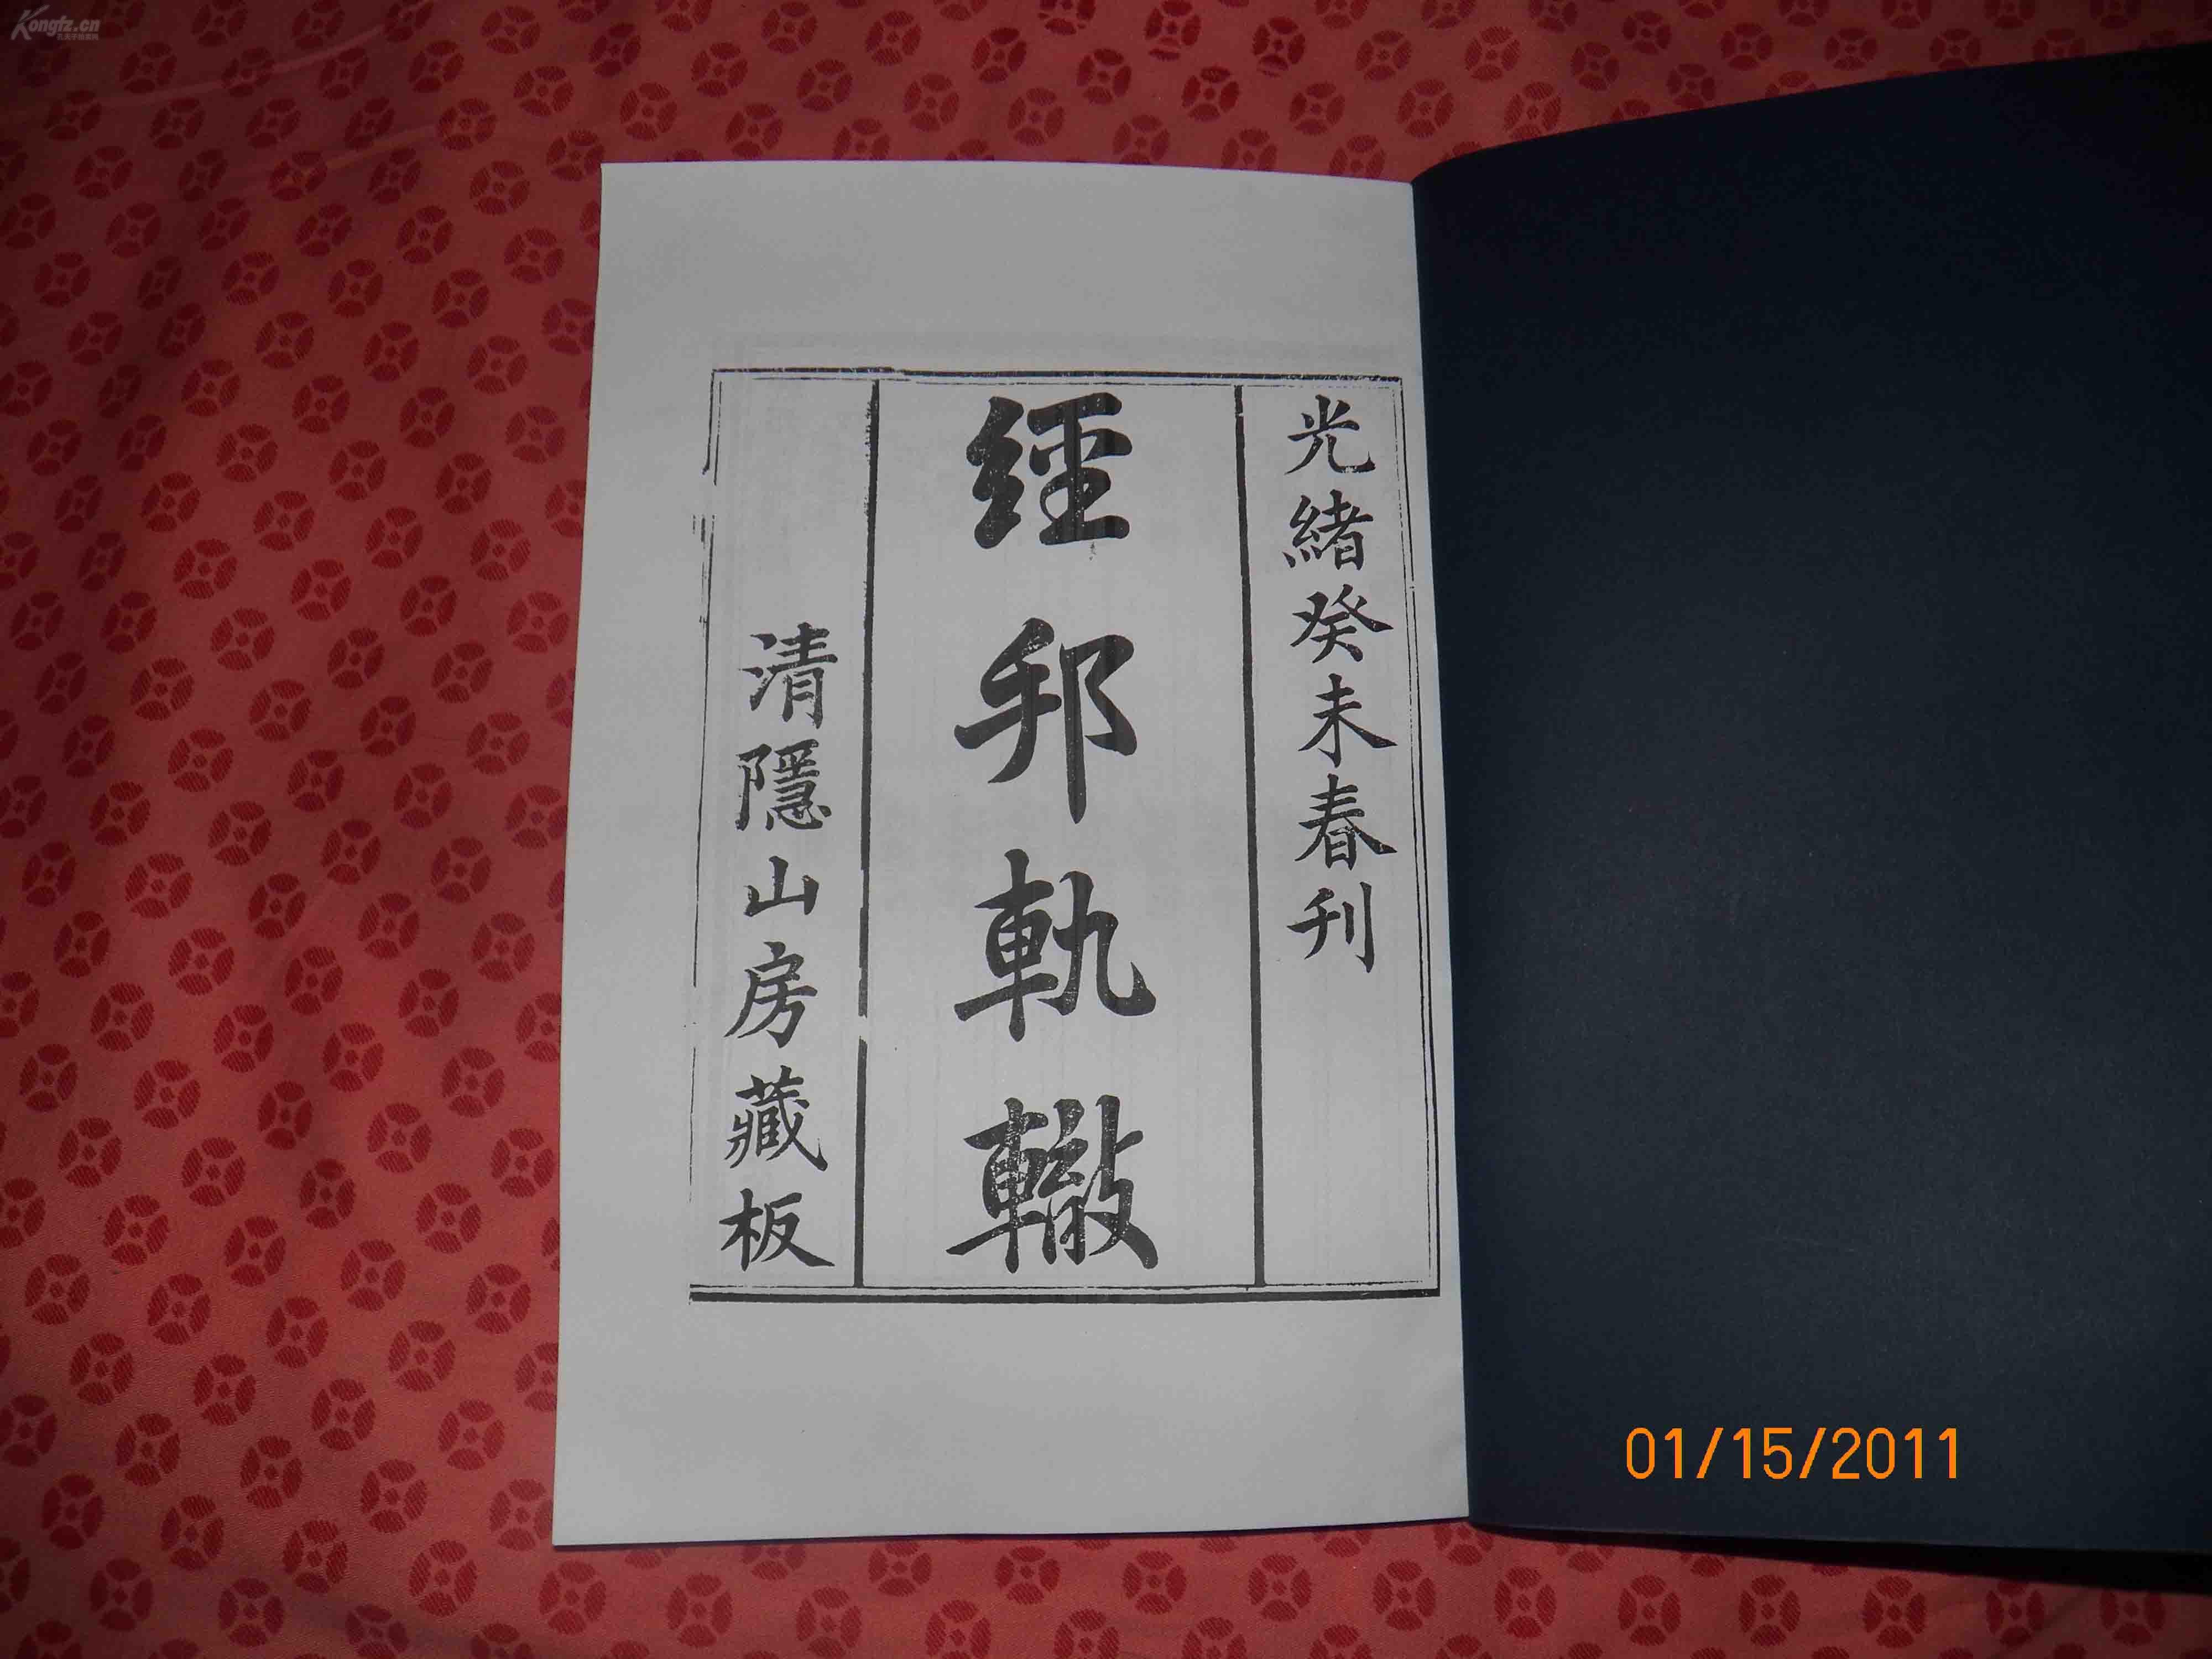 光緒癸未春刊
經邦軌轍
清隱山房藏板
01/15/2011
Kongfz.cn